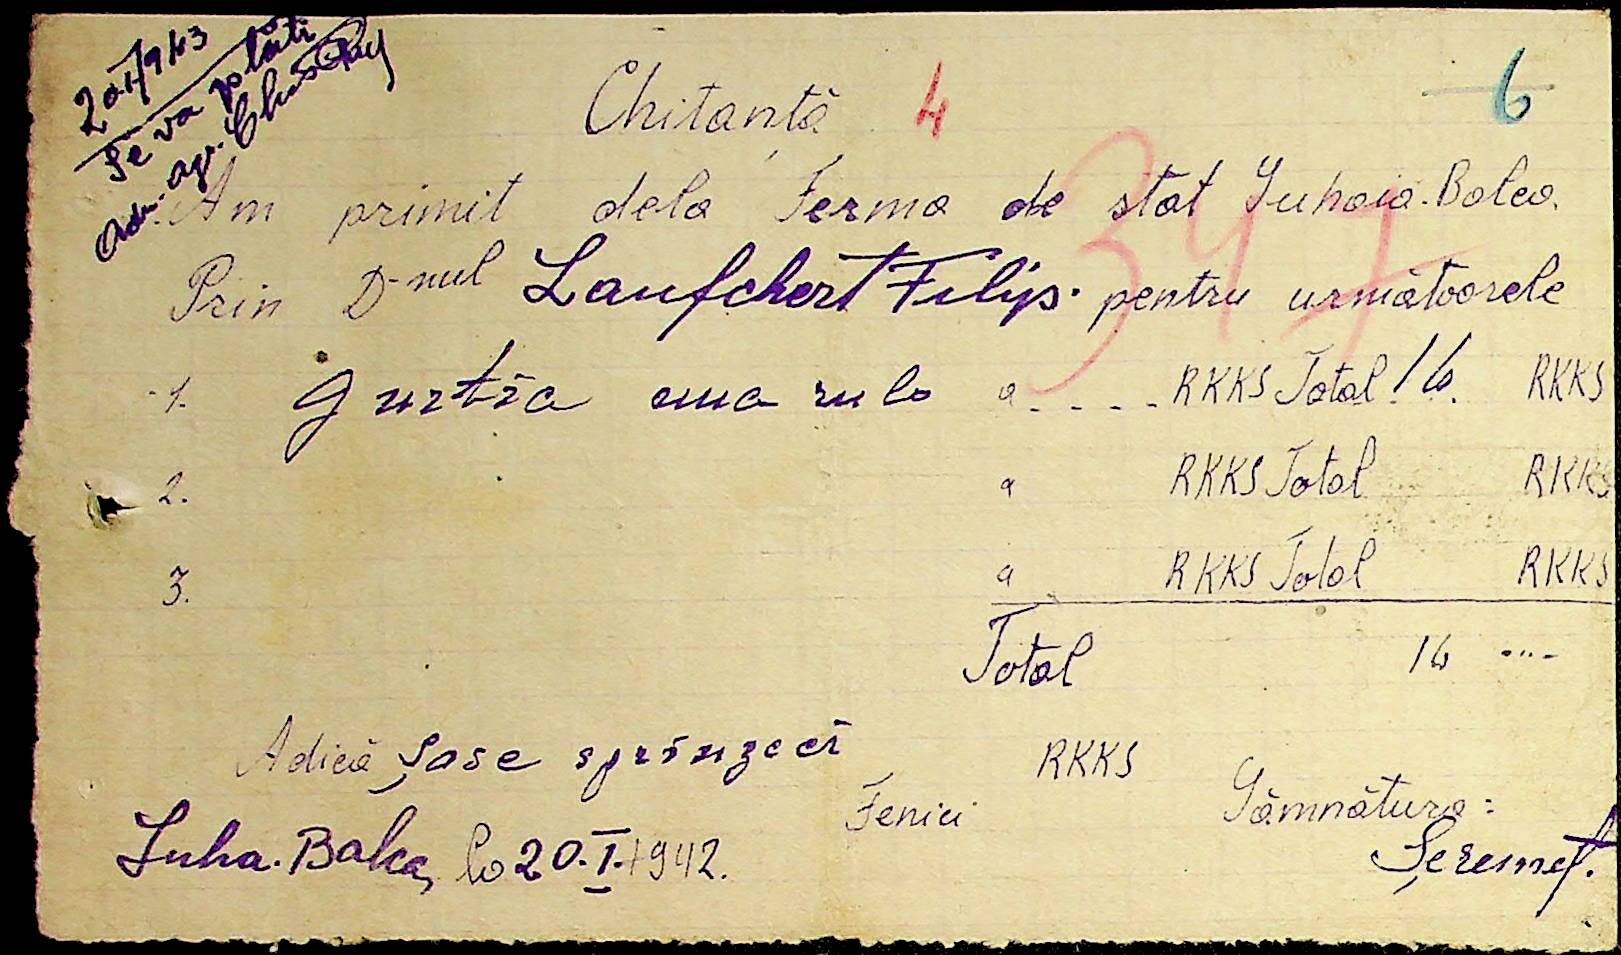 20.I/943
Se va plăti
Adm. agr.
Chitanță 4
6
347
Am primit dela Ferma de stat Suhaia-Balca
Prin D-nul Laufchert Filip. pentru următoarele
1. Jurtia una rulo a.....RKKS Total 16. RKKS
2. a RKKS Total RKKS
3. a RKKS Total RKKS
Total 16 ....
Adică Șase sprînzeci RKKS
Fenici Sămnătura:
Suha-Balca, la 20.I.1942. Șeremet.